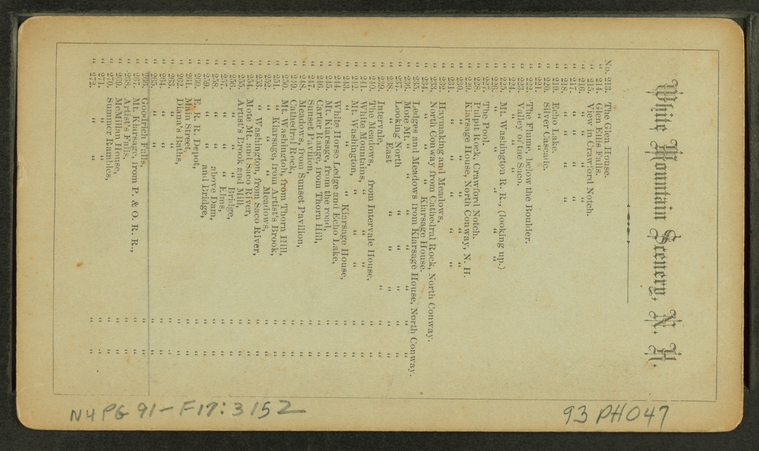 White Mountain Scenery, N. H.
No. 213. The Glen House.
" 214. Glen Ellis Falls.
" 215. View in Crawford Notch.
" 216. " " "
" 217. " " "
" 218. " " "
" 219. Echo Lake.
" 220. Silver Cascade.
" 221. " "
" 222. The Flume, below the Boulder.
" 223. Valley of the Saco.
" 224. " " "
" 225. Mt. Washington R. R., (looking up.)
" 226. " " " "
" 227. The Pool.
" 228. Pulpit Rock, Crawford Notch.
" 229. Kiarsage House, North Conway, N. H.
" 230. " " " "
" 231. " " " "
" 232. Haymaking and Meadows, "
" 233. North Conway from Cathedral Rock, North Conway.
" 234. " " " Kiarsage House.
" 235. Ledges and Meadows from Kiarsage House, North Conway.
" 236. Mote Mt. " " " "
" 237. Looking North " " " "
" 238. " East " " " "
" 239. Intervale, " "
" 240. The Meadows, from Intervale House, "
" 241. White Mountains, " " " "
" 242. Mt. Washington, " " " "
" 243. " " " Kiarsage House, "
" 244. White Horse Ledge and Echo Lake, "
" 245. Mt. Kiarsage, from the road, "
" 246. Carter Range, from Thorn Hill, "
" 247. Sunset Pavilion, "
" 248. Meadows, from Sunset Pavilion, "
" 249. Cathedral Rock, "
" 250. Mt. Washington, from Thorn Hill, "
" 251. " Kiarsage, from Artist's Brook, "
" 252. " " " Meadows, "
" 253. " Washington, from Saco River, "
" 254. Mote Mt. and Saco River, "
" 255. Artist's Brook and Mill, "
" 256. " " " Bridge, "
" 257. " " Elms, "
" 258. " " above Dam, "
" 259. " " and Bridge, "
" 260. E. R. R. Depot, "
" 261. Main Street, "
" 262. Diana's Baths, "
" 263. " " "
" 264. " " "
" 265. " " "
" 266. Goodrich Falls, "
" 267. Mt. Kiarsage, from P. & O. R. R., "
" 268. Artist's Falls, "
" 269. McMillan House, "
" 270. Summer Rambles, "
" 271. " " "
" 272. " " "
N4PG 91-F17:3152
93PH047